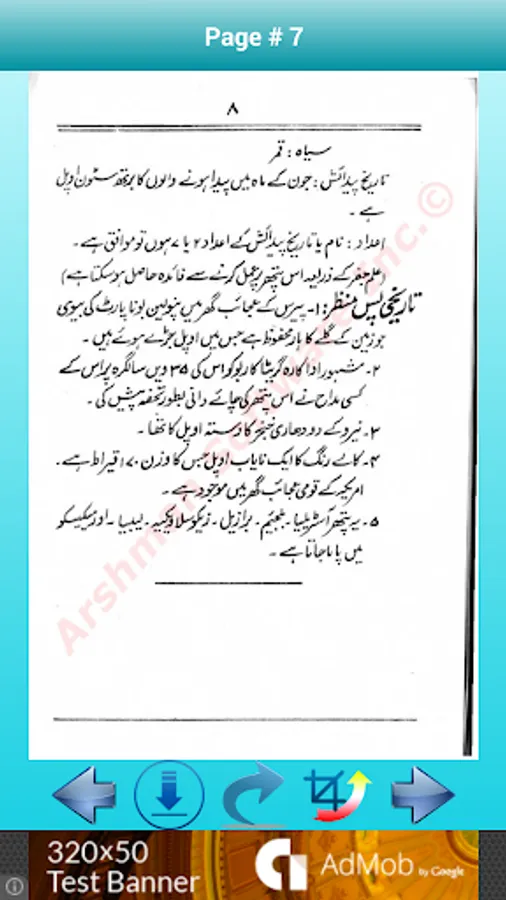 Page # 7
۸
سیاہ : قمر
تاریخ پیدائش : جون کے ماہ میں پیدا ہونے والوں کا برتھ سٹون اوپل
ہے ۔
اعداد : نام یا تاریخ پیدائش کے اعداد ۲ یا ۷ ہوں تو موافق ہے ۔
(علم جفر کے ذریعہ اس پتھر پر عمل کرنے سے فائدہ حاصل ہو سکتا ہے)
تاریخی پس منظر : ۱۔ پیرس کے عجائب گھر میں نپولین بونا پارٹ کی بیوی
جوزفین کے گلے کا ہار محفوظ ہے جس میں اوپل جڑے ہوئے ہیں ۔
۲۔ مشہور اداکارہ گریٹا گاربو کو اس کی ۳۵ ویں سالگرہ پر اس کے
کسی مداح نے اس پتھر کی چائے دانی بطور تحفہ پیش کی ۔
۳۔ نیرو کے دو دھاری خنجر کا دستہ اوپل کا تھا ۔
۴۔ کالے رنگ کا ایک نایاب اوپل جس کا وزن ۱۷۰ قیراط ہے ۔
امریکہ کے قومی عجائب گھر میں موجود ہے ۔
۵۔ یہ پتھر آسٹریلیا ۔ بلجیئم ۔ برازیل ۔ زیکوسلاویکیہ ۔ لیبیا ۔ اور میکسیکو
میں پایا جاتا ہے ۔
320×50
Test Banner
AdMob by Google